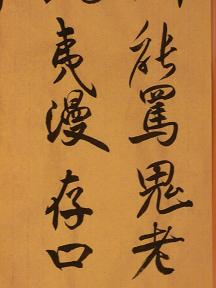 能罵鬼老
夷漫存口